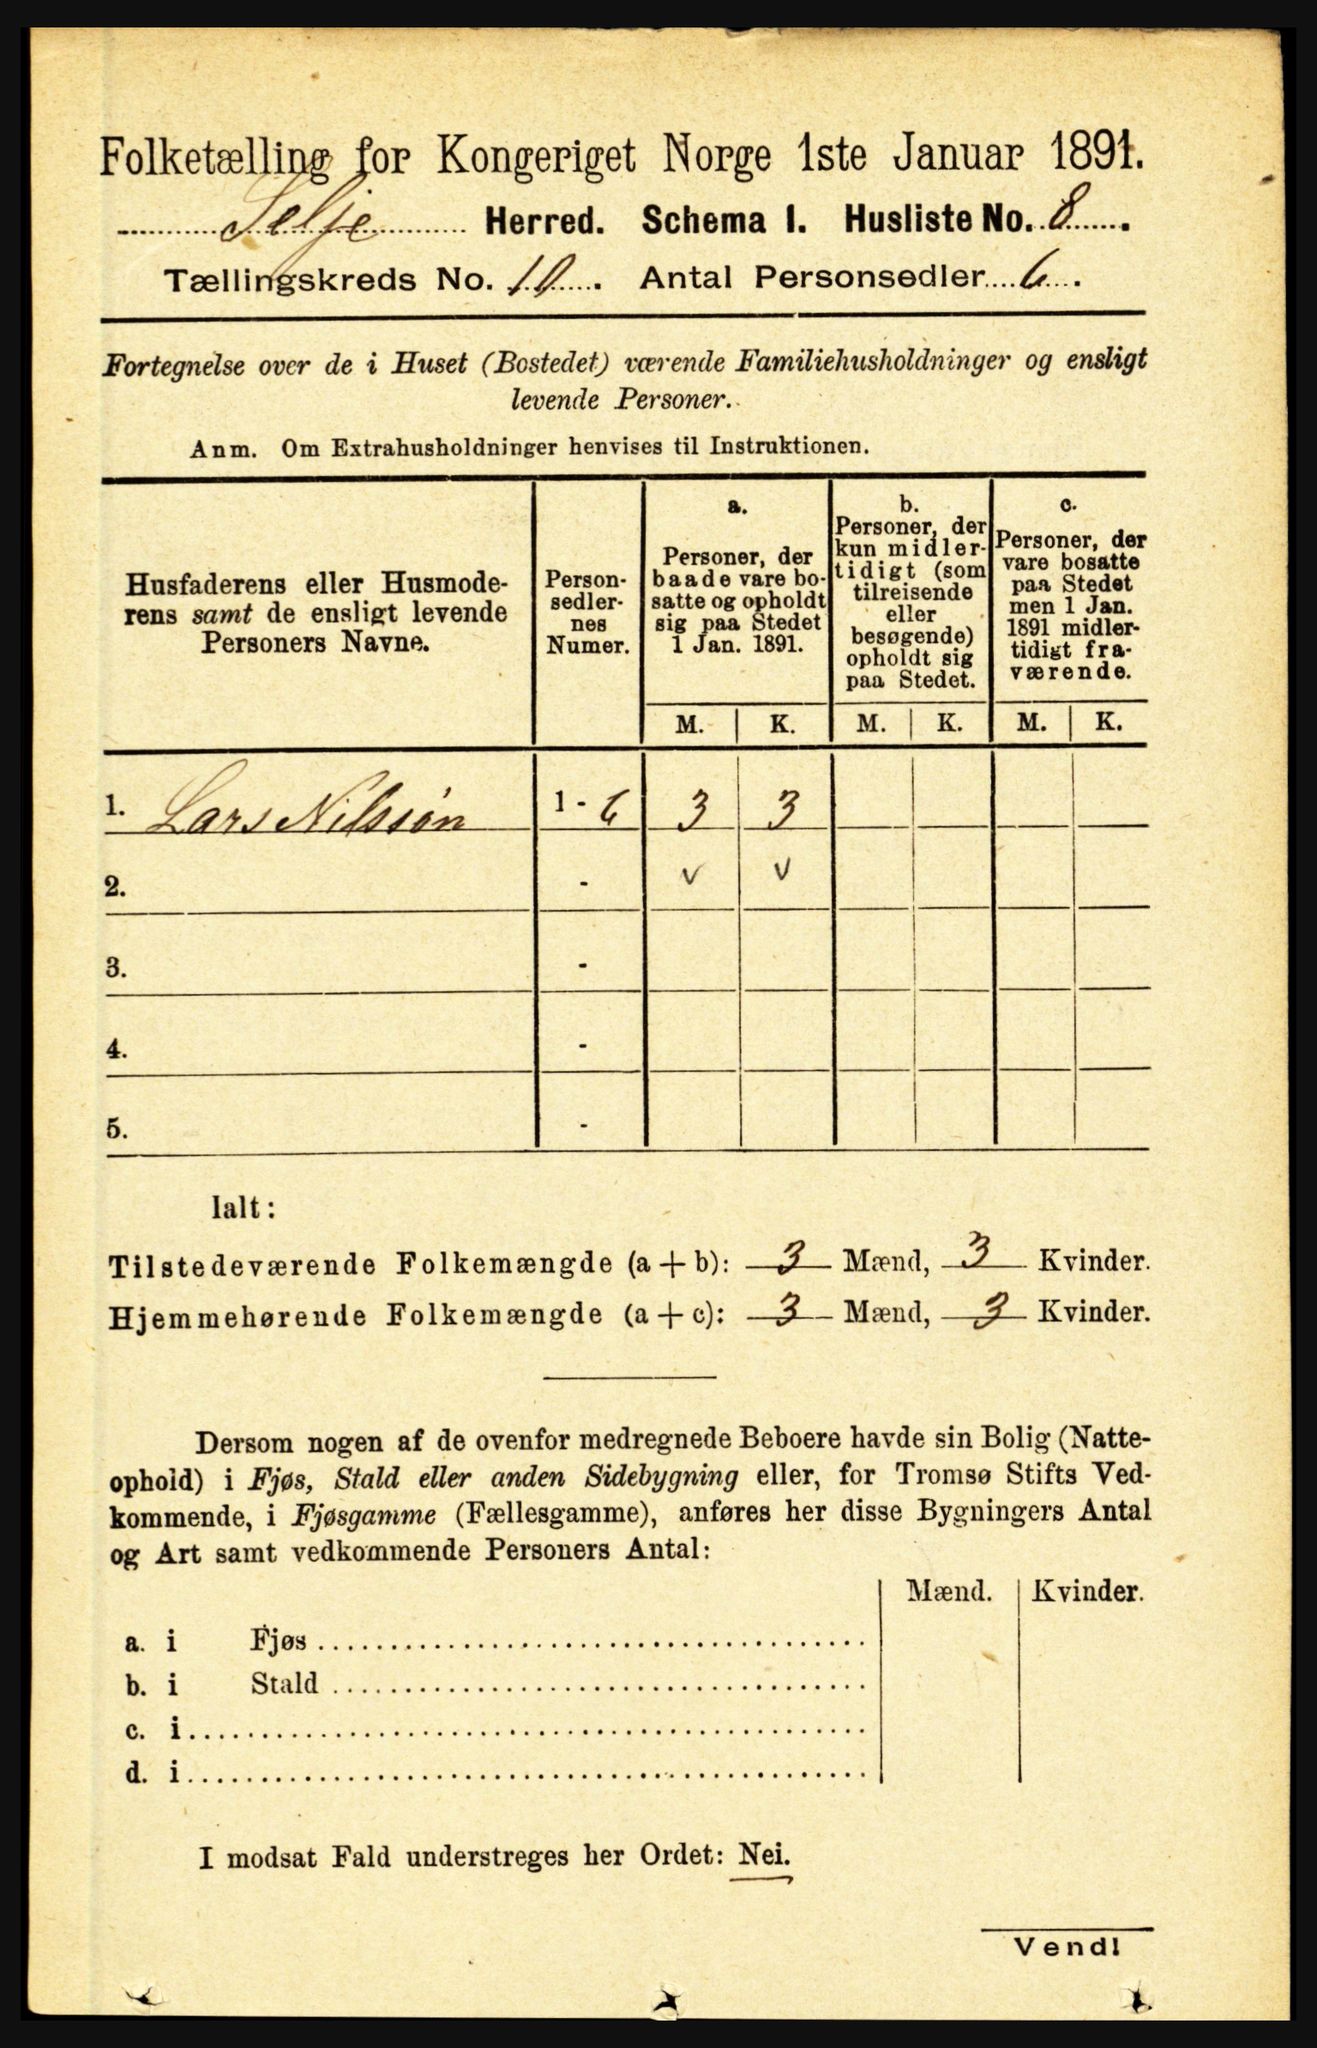 Folketælling for Kongeriget Norge 1ste Januar 1891.
Selje Herred. Schema I. Husliste No. 8.
Tællingskreds No. 10. Antal Personsedler 6.
Fortegnelse over de i Huset (Bostedet) værende Familiehusholdninger og ensligt
levende Personer.
Anm. Om Extrahusholdninger henvises til Instruktionen.
Husfaderens eller Husmode-
rens samt de ensligt levende
Personers Navne.
Person-
sedler-
nes
Numer.
a.
Personer, der
baade vare bo-
satte og opholdt
sig paa Stedet
1 Jan. 1891.
b.
Personer, der
kun midler-
tidigt (som
tilreisende
eller
besøgende)
opholdt sig
paa Stedet.
c.
Personer, der
vare bosatte
paa Stedet
men 1 Jan.
1891 midler-
tidigt fra-
værende.
M. K. M. K. M. K.
1. Lars Nilssøn 1 - 6 3 3
2. - v v
3. -
4. -
5. -
Ialt:
Tilstedeværende Folkemængde (a + b): 3 Mænd, 3 Kvinder.
Hjemmehørende Folkemængde (a + c): 3 Mænd, 3 Kvinder.
Dersom nogen af de ovenfor medregnede Beboere havde sin Bolig (Natte-
ophold) i Fjøs, Stald eller anden Sidebygning eller, for Tromsø Stifts Ved-
kommende, i Fjøsgamme (Fællesgamme), anføres her disse Bygningers Antal
og Art samt vedkommende Personers Antal:
Mænd. Kvinder.
a. i Fjøs
b. i Stald
c. i
d. i
I modsat Fald understreges her Ordet: Nei.
Vend!